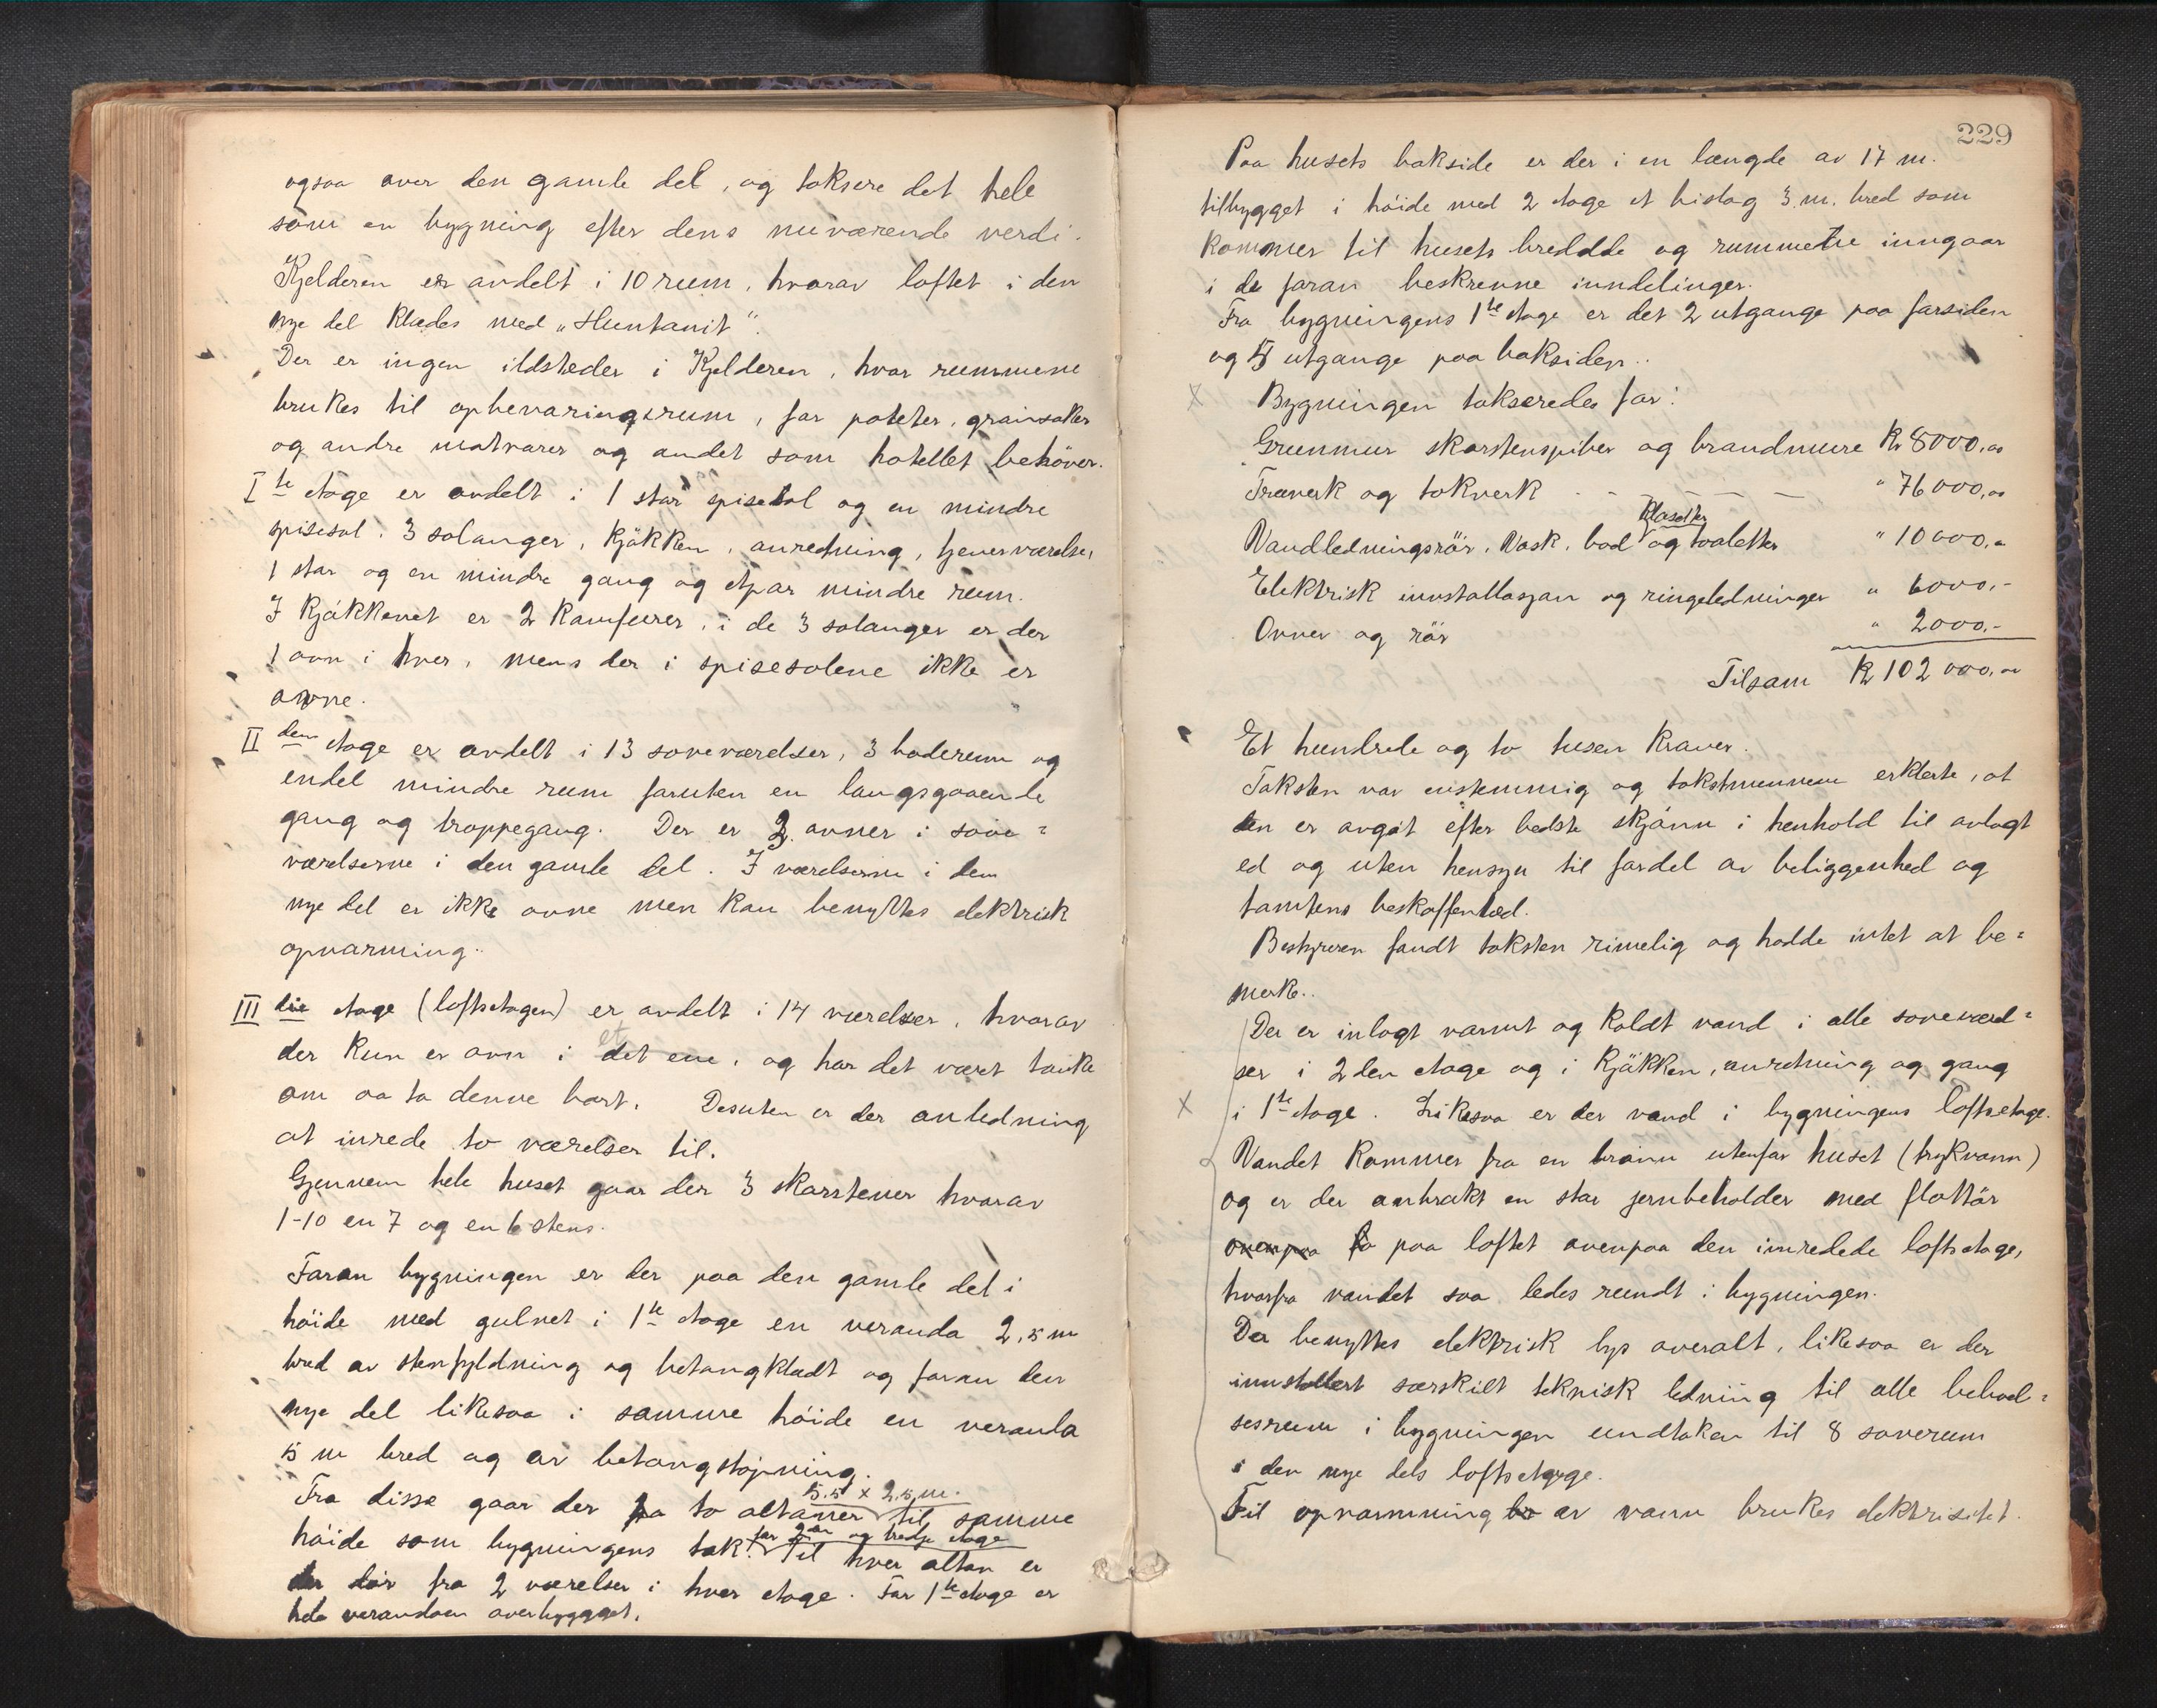 ogsaa over den gamle del, og taksere det hele
som en bygning efter dens nuværende verdi.
Kjelderen er avdelt i 10 rum, hvorav loftet i den
nye del klædes med „Huntonit".
Der er ingen ildsteder i Kjelderen, hvor rummene
brukes til opbevaringsrum, for poteter, grønsaker
og andre matvarer og andet som hotellet behöver.
I te etage er avdelt i 1 stor spisesal og en mindre
spisesal. 3 salonger, Kjökken, anretning, tjenerværelse,
1 stor og en mindre gang og etpar mindre rum.
I Kjökkenet er 2 Komfurer, i de 3 salonger er der
1 ovn i hver, mens der i spisesalene ikke er
ovne.
II den etage er avdelt i 13 soveværelser, 3 baderum og
endel mindre rum foruten en langsgaaende
gang og troppegang. Der er 3 ovner i sove=
værelserne i den gamle del. I værelserne i den
nye del er ikke ovne men kan benyttes elektrisk
opvarming.
III die etage (loftsetagen) er avdelt i 14 værelser, hvorav
der kun er ovn i det et ene, og har det været tanke
om aa ta denne bort. Desuten er der anledning
at inrede to værelser til.
Gjennem hele huset gaar der 3 skorstener hvorav
1-10 en 7 og en 6 stens.
Foran bygningen er der paa den gamle del i
höide med gulvet i 1te etage en veranda 2,5 m
bred av stenfyldning og betongklædt og foran den
nye del likesaa i samme höide en veranda
5 m bred og av betongstøpning.
5.5 x 2.5 m.
Fra disse gaar der to altaner til samme
for 2den og tredje etage
höide som bygningens tak. Til hver altan er
der dör fra 2 værelser i hver etage. For 1te etage er
hele verandaen overbygget.
229
Paa husets bakside er der i en længde av 17 m.
tilbygget i höide med 2 etage et bislag 3 m. bred som
kommer til husets bredde og rummene inngaar
i de foran beskrevne inndelinger.
Fra bygningens 1te etage er det 2 utgange paa forsiden
og 5 utgange paa baksiden.
x Bygningen takseredes for:
Grunmur skorstenspiber og brandmure Kr 8000,00
Træverk og takverk - - - - - " 76000,00
Klosetter
Vandledningsrör, Vask, bad og toaletter " 10000,-
Elektrisk innstallasjon og ringeledninger " 6000,-
Ovner og rör " 2000,-
Tilsam Kr 102000,00
Et hundrede og to tusen Kroner.
Taksten var enstemmig og takstmennene erklerte, at
den er avgit efter bedste skjönn i henhold til avlagt
ed og uten hensyn til fordel av beliggenhed og
tomtens beskaffenhed.
Bestyreren fandt taksten rimelig og hadde intet at be=
merke.
Der er inlagt varmt og koldt vand i alle soveværel=
ser i 2den etage og i Kjökken, anretning og gang
x i 1te etage. Likesaa er der vand i bygningens loftsetage.
Vandet kommer fra en brönn utenfor huset (trykvann)
og er der anbrakt en stor jernbeholder med flottör
ovenpaa paa loftet ovenpaa den inredede loftsetage,
hvorfra vandet saa ledes rundt i bygningen.
Der benyttes elektrisk lys overalt, likesaa er der
innstallert særskilt teknisk ledning til alle beboel=
sesrum i bygningen undtaken til 8 soverum
i den nye dels loftsetage.
Til opvarmning av vann brukes elektrisitet.